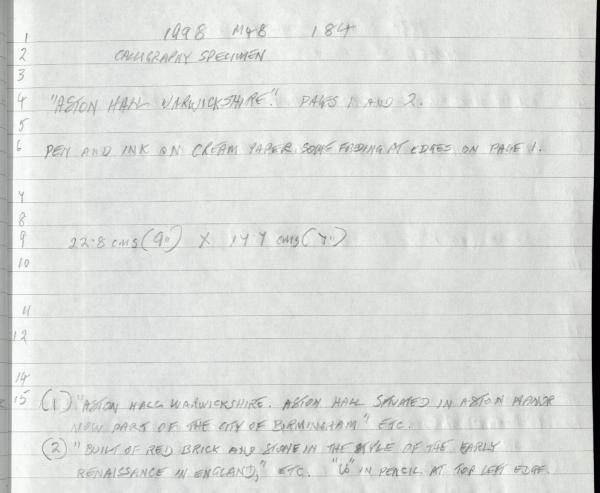 1 1998 M48 184
2 CALLIGRAPHY SPECIMEN
3
4 "ASTON HALL WARWICKSHIRE." PAGES 1 AND 2.
5
6 PEN AND INK ON CREAM PAPER SOME FADING AT EDGES ON PAGE 1.
7
8
9 22.8 cms (9") X 17.7 cms (7")
10
11
12
14
15 (1) "ASTON HALL WARWICKSHIRE. ASTON HALL SITUATED IN ASTON MANOR
NOW PART OF THE CITY OF BIRMINGHAM" ETC.
(2) "BUILT OF RED BRICK AND STONE IN THE STYLE OF THE EARLY
RENAISSANCE IN ENGLAND," ETC. IN PENCIL AT TOP LEFT EDGE.